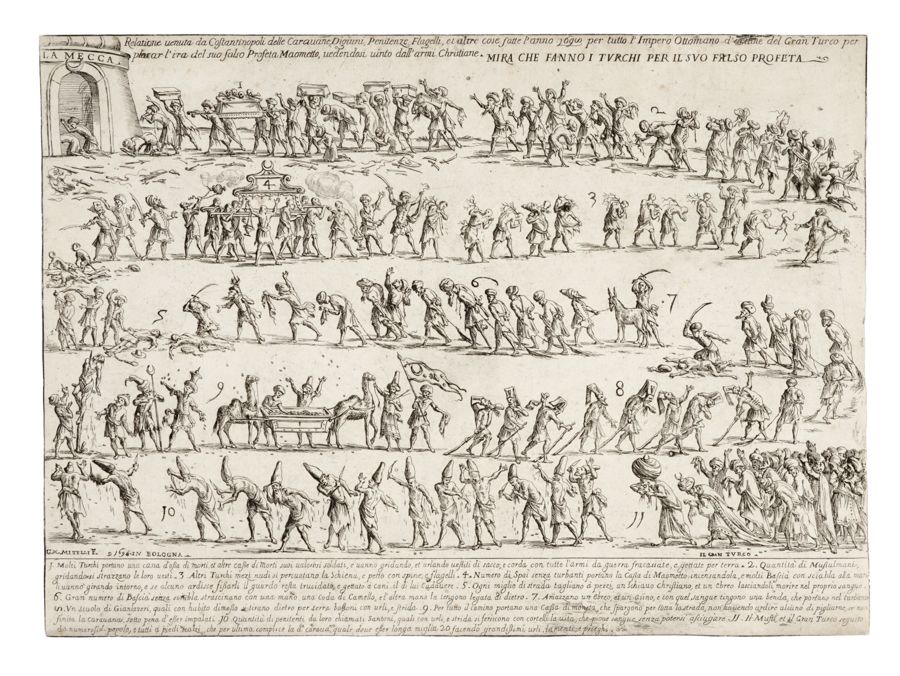 Relatione uenuta da Costantinopoli delle Carauane, Digiuni, Penitenze, Flagelli, et altre cose fatte l'anno 1690 per tutto l'Impero Ottomano d' del Gran Turco per
placar l'ira del suo falso Profeta Maometto, uedendosi uinto dall'armi Christiane.
MIRA CHE FANNO I TVRCHI PER IL SVO FALSO PROFETA
LA MECCA.
1
2
4
3
5
6
7
9
8
10
11
G.M. MITELLI F. IN BOLOGNA
IL GRAN TVRCO
1. Molti Turchi portano una cassa d'ossa di morti et altre casse di Morti suoi ualorosi soldati, e uanno gridando, et urlando uestiti di sacco, e corda con tutte l'armi da guerra fracassate, e gettate per terra. 2. Quantità di Musulmani,
gridandosi strazzano le loro uesti. 3. Altri Turchi mezi nudi si percuotano la schiena, e petto con spine, e flagelli. 4. Numero di Spai senza turbanti portano la Cassa di Maometto incensandola, e molti Bascià con sciabla alla mano
li uanno girando intorno, e se alcuno ardisse fissarli il guardo resta trucidato, e gettato a' cani il di lui Cadauere. 5. Ogni miglio di strada tagliano a pezzi, un schiauo Christiano, et un Ebreo lasciandoli morire nel proprio sangue.
6. Gran numero di Bascià senza sciabla strascinano con una mano una Coda di Camello, et altra mano la tengono legata di dietro. 7. Amazzano un Ebreo, et un Asino, e con quel sangue tingono una benda, che portano nel turbante.
8. Vn stuolo di Gianizzeri, quali con habito dimesso tirano dietro per terra bastoni con urli, e strida. 9. Per tutto il camino portano una Cassa di moneta, che spargono per tutta la strada, non hauendo ardire alcuno di pigliarne, se non
finita la Carauana, sotto pena d'esser impalati. 10. Quantità di penitenti da loro chiamati Santoni, quali con urli, e strida si feriscono con cortelli la uita, che pioue sangue, senza potersi asciugare. 11. Il Mufti, et il Gran Turco seguito
da numeroso popolo, e tutti a piedi nudi, che per ultimo complice la d.ª carauana, quale deue esser longa miglia 20 facendo grandissimi urli, lamenti, e preghi.